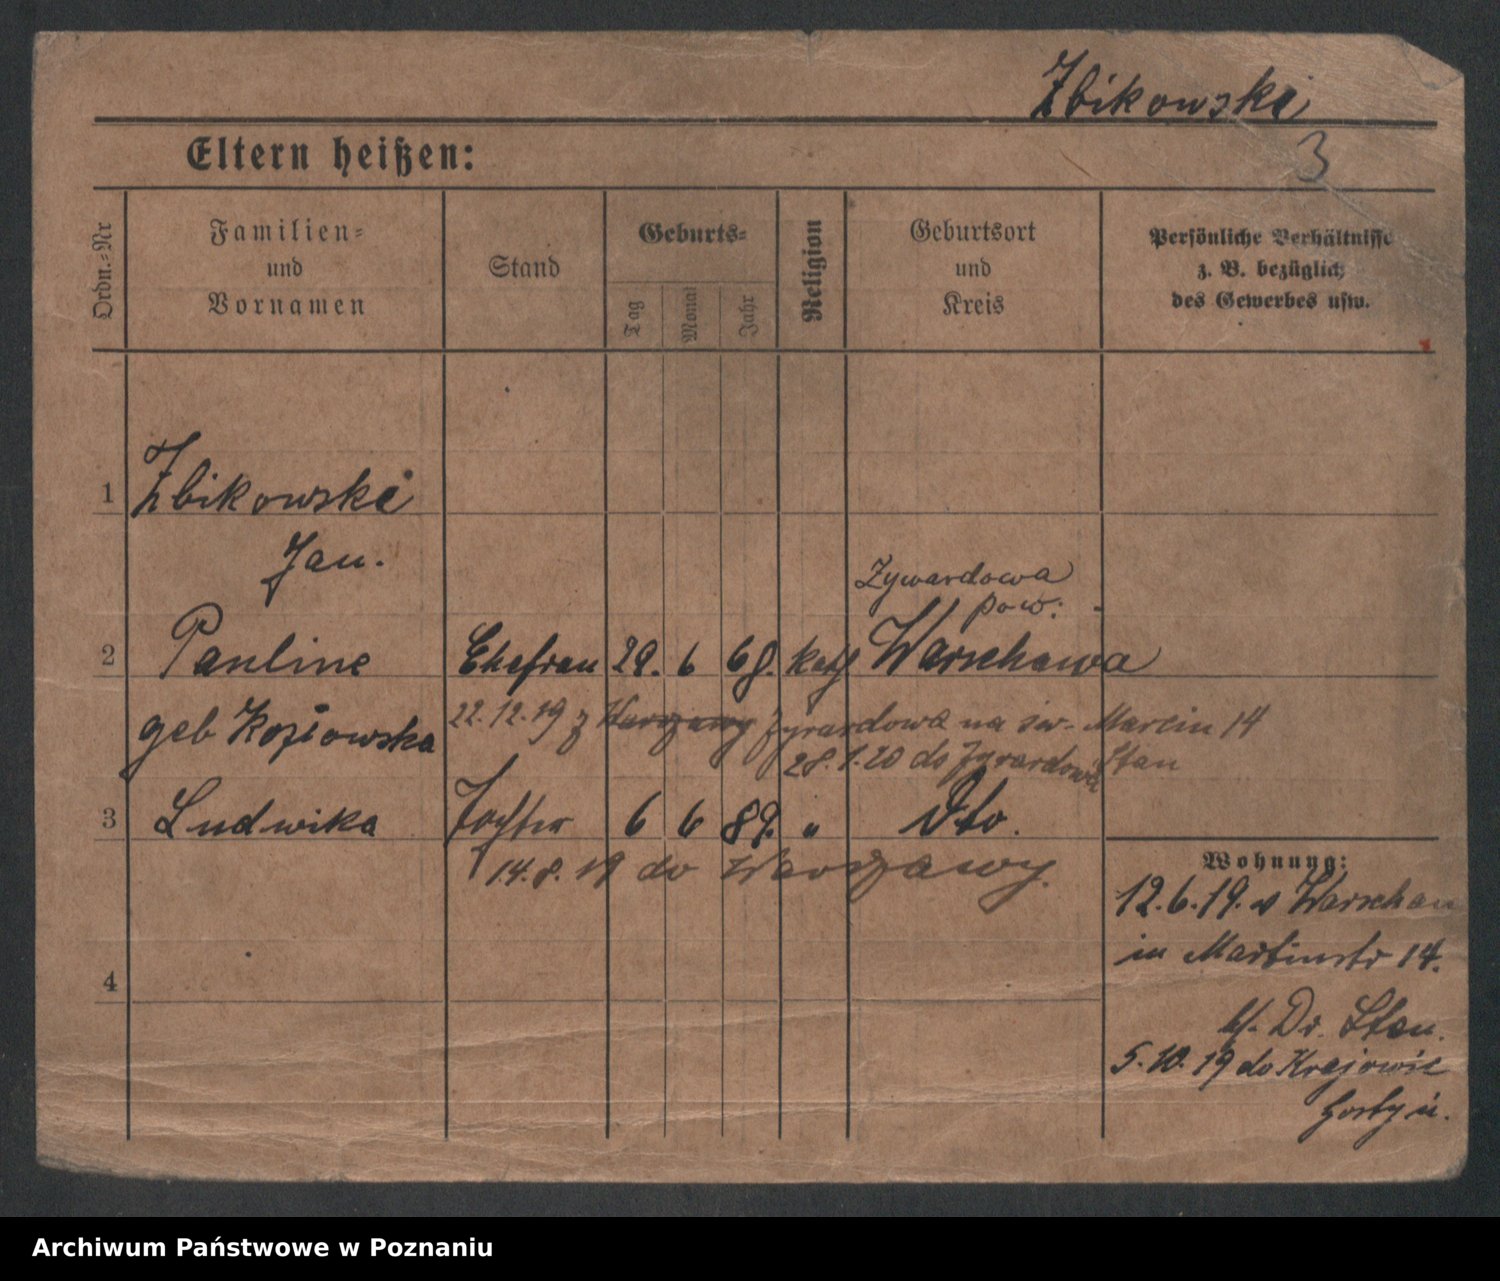 Zbikowski
3
Eltern heißen:
Ordn.-Nr
Familien-
und
Vornamen
Stand
Geburts-
Tag
Monat
Jahr
Religion
Geburtsort
und
Kreis
Persönliche Verhältnisse
z. B. bezüglich
des Gewerbes usw.
1 Zbikowski
Jan.
Zywardowa
pow:
2 Pauline Ehefrau 29. 6 68. kath Warschawa
geb
22.12.19 z Warszawy Zyrardowa na św. Marcin 14
28.1.20 do Zyrardowa Stan
3 Ludwika Tochter 6 6 89. " Dto.
14.8.19 do Warszawy.
4
Wohnung:
12.6.19. v Warschau
in Martinstr 14.
b/. Dr. Stan.
5.10.19 do
Gostyń.
Archiwum Państwowe w Poznaniu